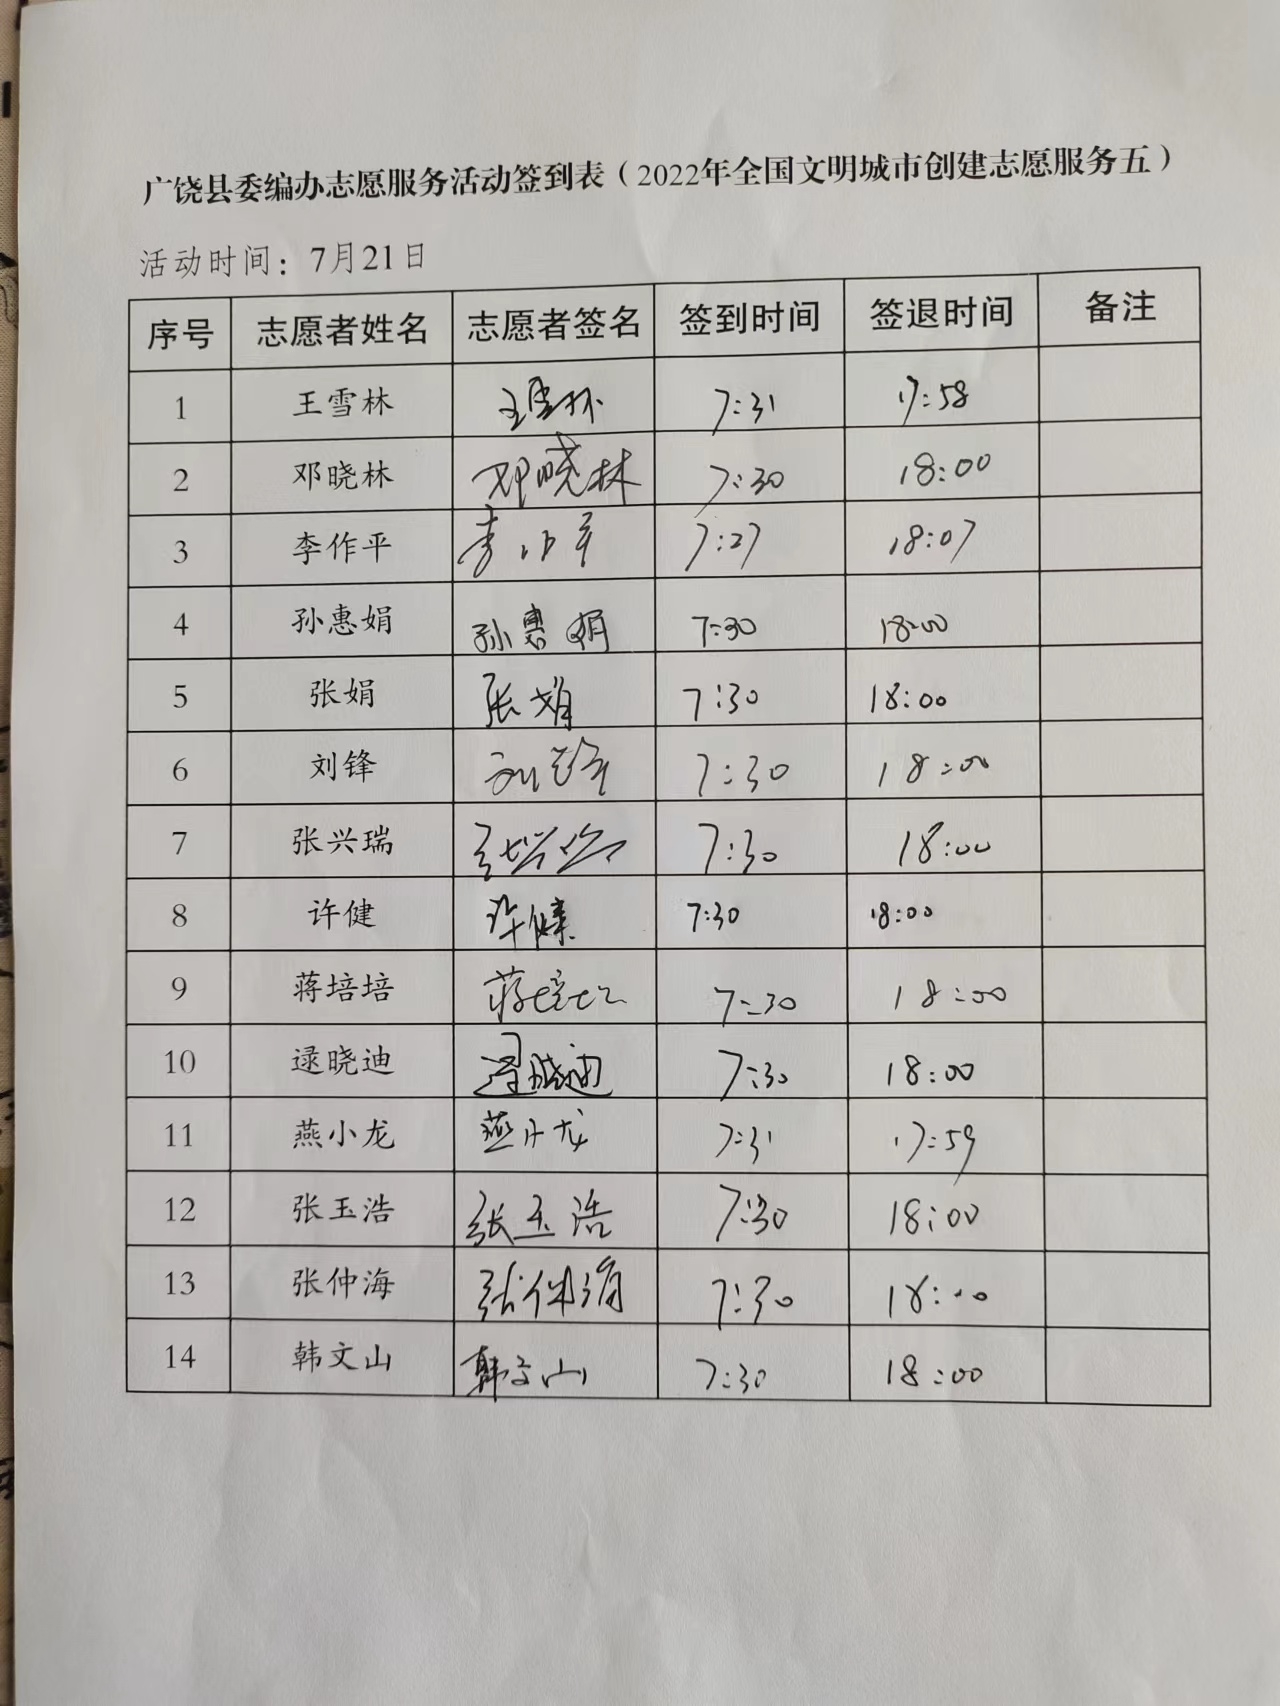 广饶县委编办志愿服务活动签到表（2022年全国文明城市创建志愿服务五）
活动时间：7月21日
序号 志愿者姓名 志愿者签名 签到时间 签退时间 备注
1 王雪林 王雪林 7:31 17:58
2 邓晓林 邓晓林 7:30 18:00
3 李作平 李作平 7:27 18:07
4 孙惠娟 孙惠娟 7:30 18:00
5 张娟 张娟 7:30 18:00
6 刘锋 刘锋 7:30 18:00
7 张兴瑞 张兴瑞 7:30 18:00
8 许健 许健 7:30 18:00
9 蒋培培 蒋培培 7:30 18:00
10 逯晓迪 逯晓迪 7:30 18:00
11 燕小龙 燕小龙 7:31 17:59
12 张玉浩 张玉浩 7:30 18:00
13 张仲海 张仲海 7:30 18:00
14 韩文山 韩文山 7:30 18:00